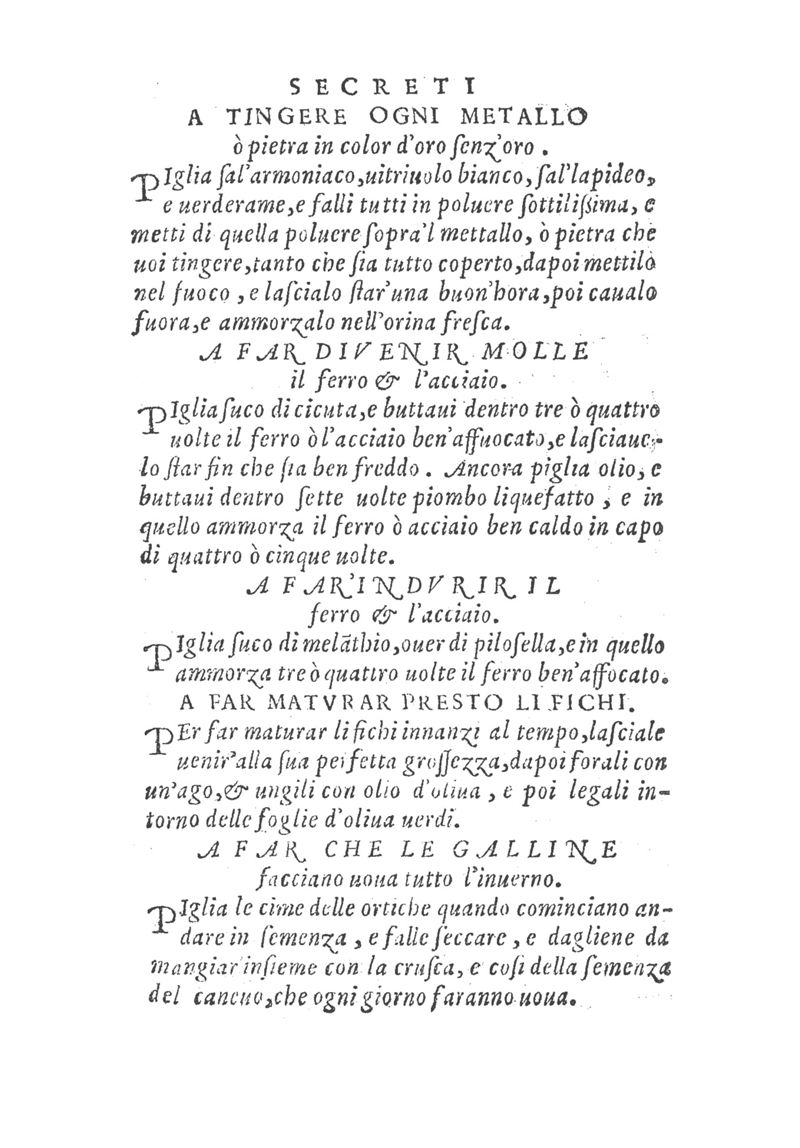 SECRETI
A TINGERE OGNI METALLO
ò pietra in color d'oro ſenz'oro .
PIglia ſal'armoniaco,uitriuolo bianco, ſal'lapideo,
e uerderame,e falli tutti in poluere ſottilißima, e
metti di quella poluere ſopra'l mettallo, ò pietra che
uoi tingere,tanto che ſia tutto coperto,dapoi mettilo
nel fuoco , e laſcialo ſtar'una buon'hora,poi caualo
fuora,e ammorzalo nell'orina freſca.
A FAR DIVENIR MOLLE
il ferro & l'acciaio.
PIglia ſuco di cicuta,e buttaui dentro tre ò quattro
uolte il ferro ò l'acciaio ben'affuocato,e laſciaue-
lo ſtar fin che ſia ben freddo . Ancora piglia olio, e
buttaui dentro ſette uolte piombo liquefatto , e in
quello ammorza il ferro ò acciaio ben caldo in capo
di quattro ò cinque uolte.
A FAR'INDVRIR IL
ferro & l'acciaio.
PIglia ſuco di melãthio,ouer di piloſella,e in quello
ammorza tre ò quattro uolte il ferro ben'affocato.
A FAR MATVRAR PRESTO LI FICHI.
PEr far maturar li fichi innanzi al tempo,laſciale
uenir'alla ſua perfetta groſſezza,dapoi forali con
un'ago,& ungili con olio d'oliua , e poi legali in-
torno delle foglie d'oliua uerdi.
A FAR CHE LE GALLINE
facciano uoua tutto l'inuerno.
PIglia le cime delle ortiche quando cominciano an-
dare in ſemenza , e falle ſeccare , e dagliene da
mangiar inſieme con la cruſca, e coſi della ſemenza
del caneuo,che ogni giorno faranno uoua.